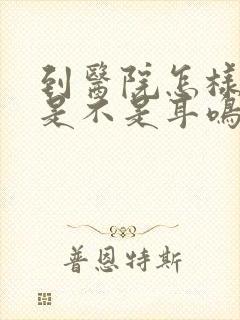 到醫院怎樣
是不是耳鳴
普恩特斯